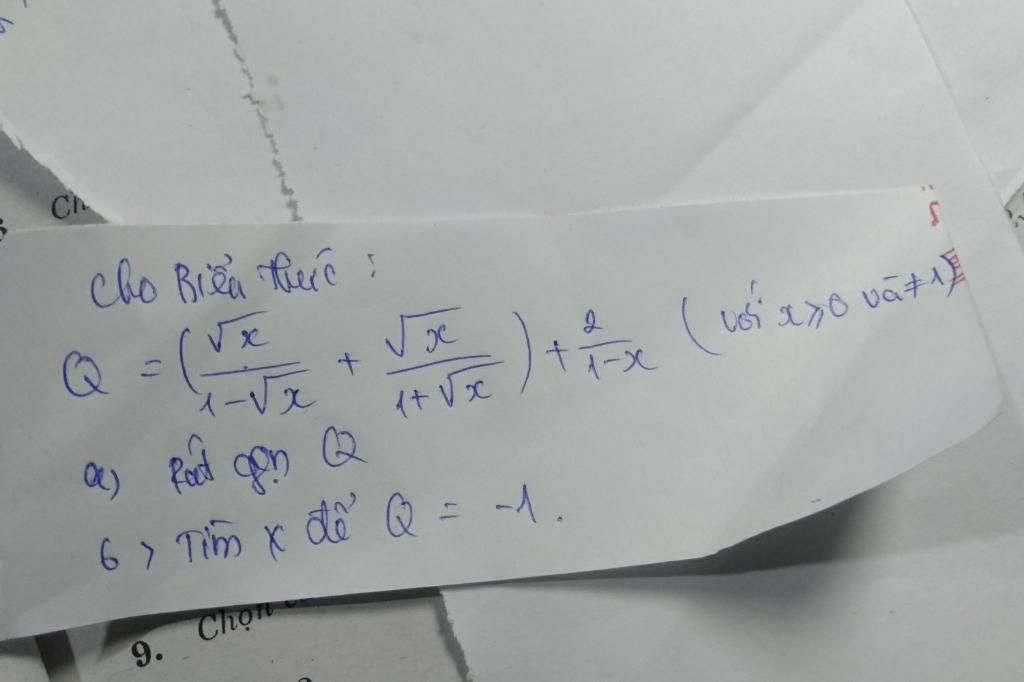 Ch
Cho Biểu thức :
Q = ( √x / (1-√x) + √x / (1+√x) ) + 2 / (1-x) ( với x ⩾ 0 và ≠ 1)
a) Rút gọn Q
b > Tìm x để Q = -1 .
9. Chọn